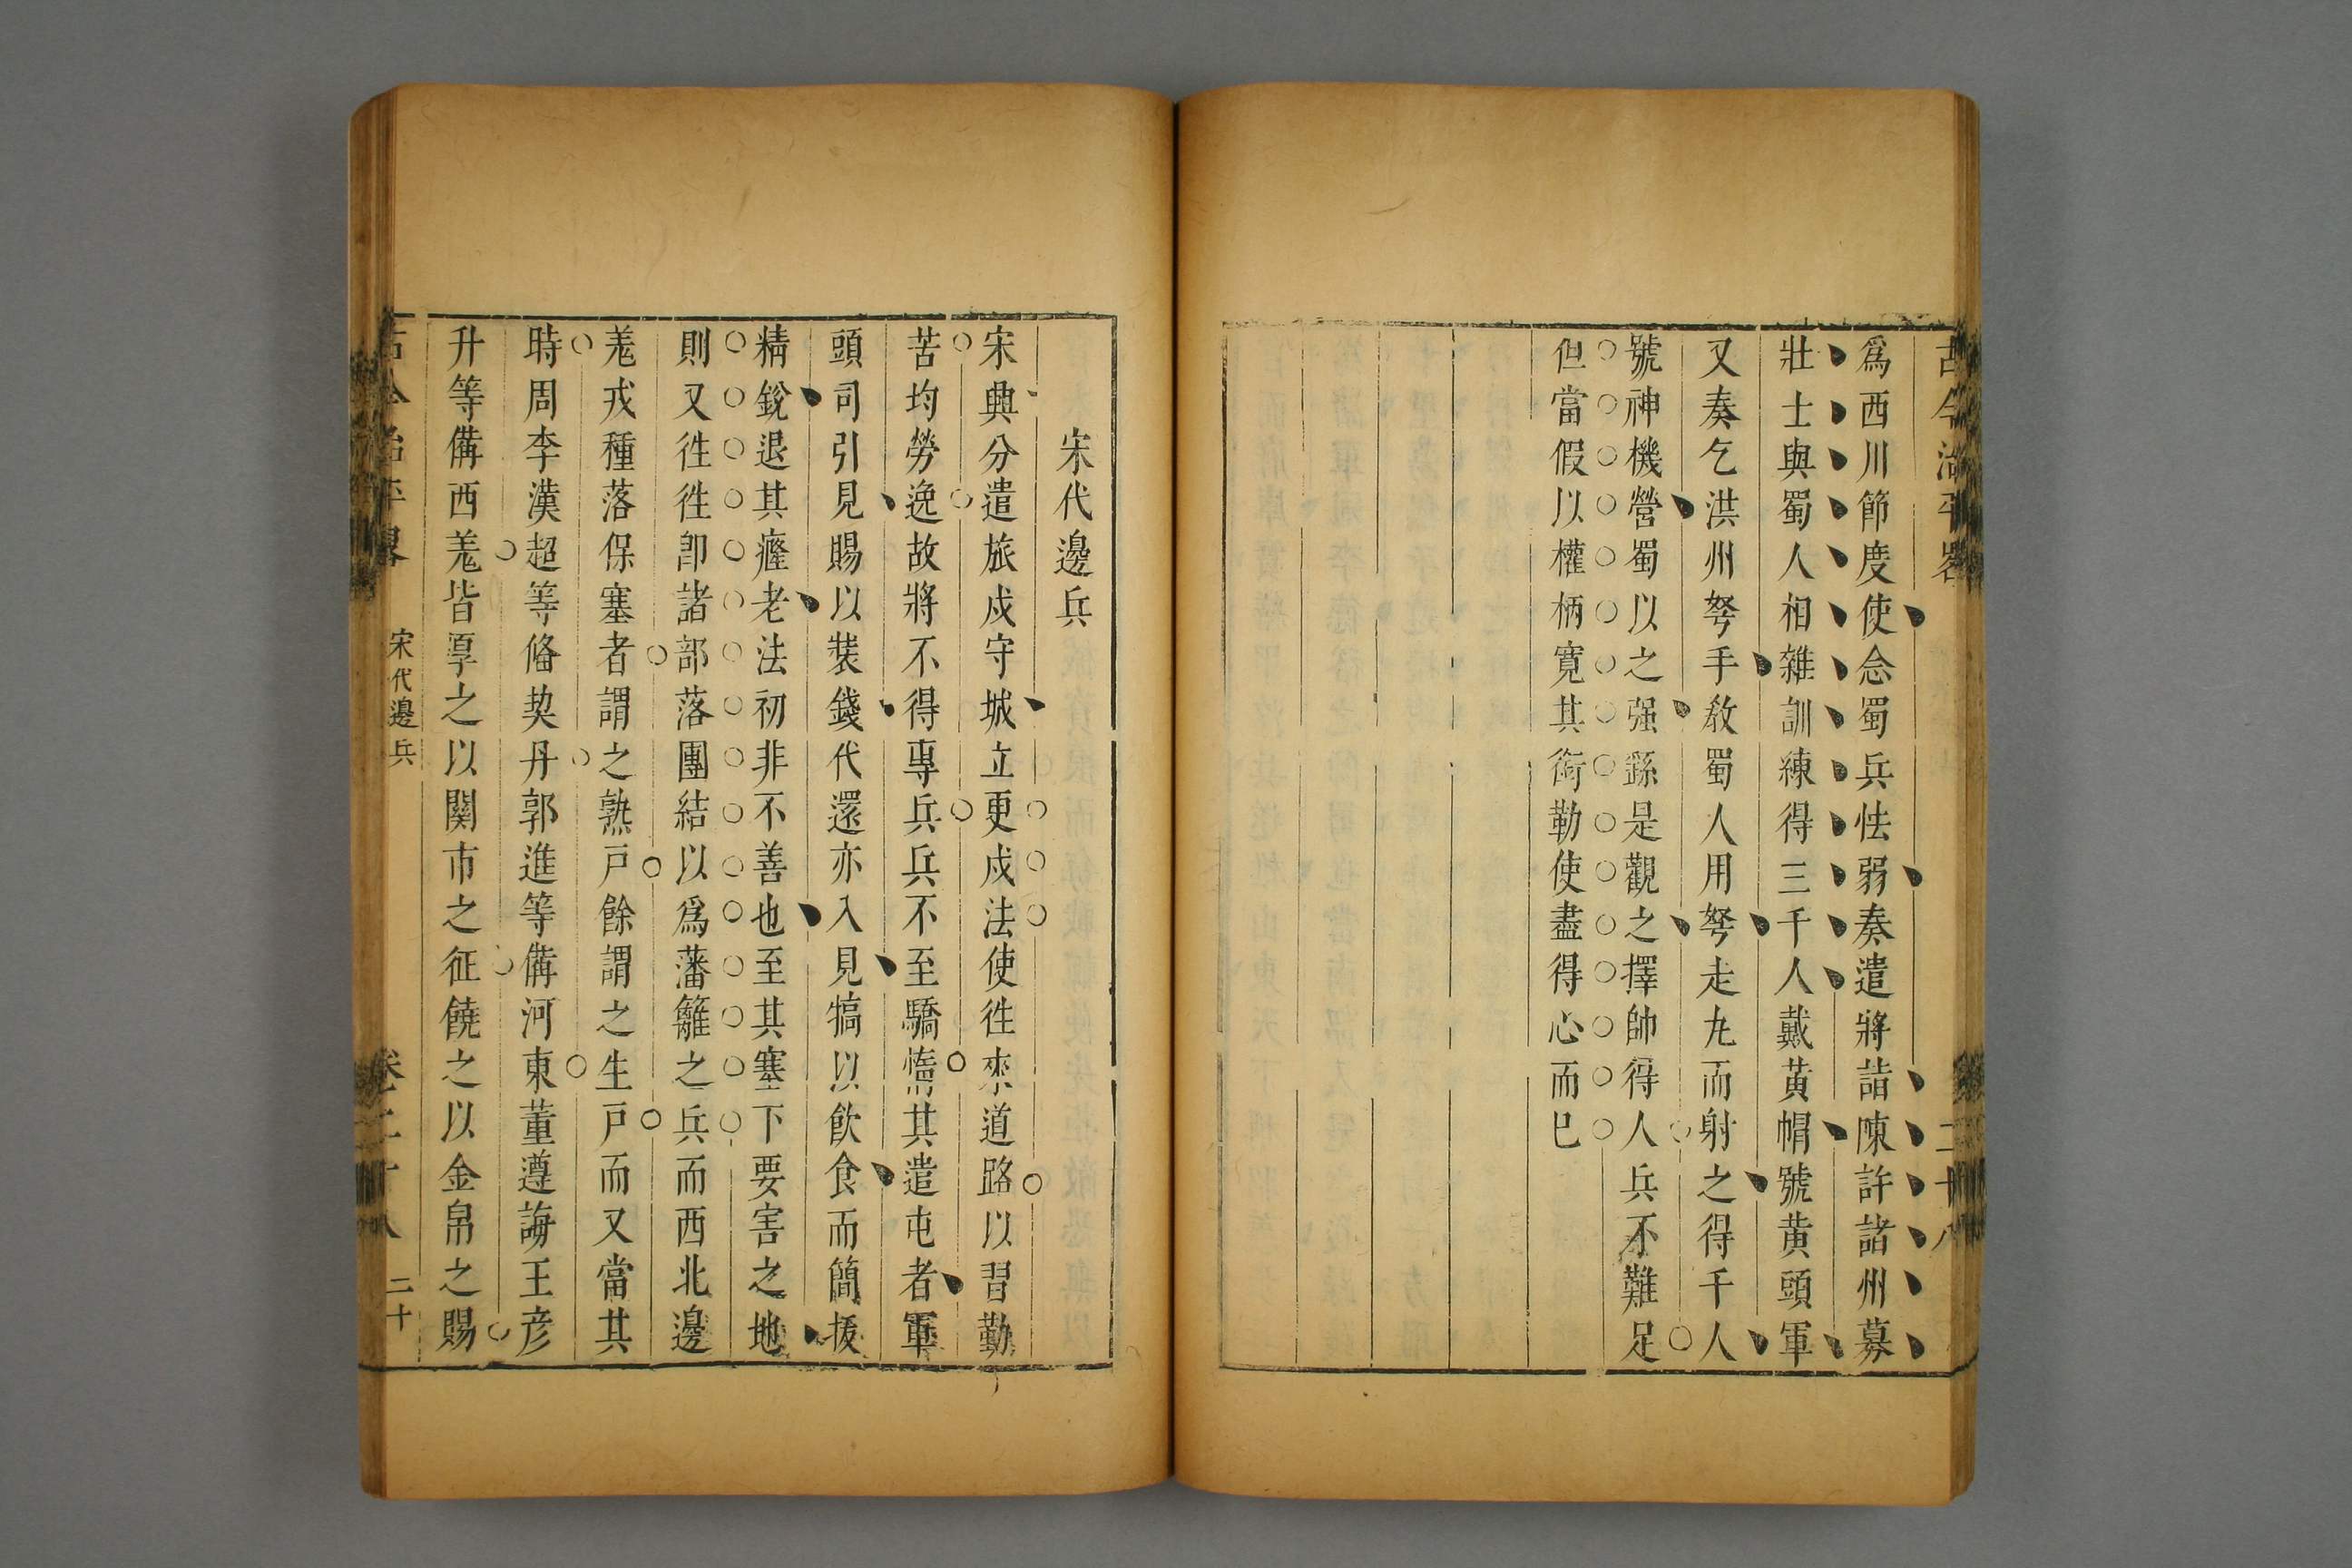 古今治平畧
二十八
爲西川節度使念蜀兵怯弱奏遣將詣陳許諸州募
壯士與蜀人相雜訓練得三千人戴黄帽號黄頭軍
又奏乞洪州弩手敎蜀人用弩走丸而射之得千人
號神機營蜀以之强繇是觀之擇帥得人兵不難足
但當假以權柄寛其銜勒使盡得心而已
宋代邊兵
宋興分遣旅戍守城立更戍法使徃來道路以習勤
苦均勞逸故將不得專兵兵不至驕惰其遣屯者軍
頭司引見賜以裝錢代還亦入見犒以飮食而簡拔
精銳退其癃老法初非不善也至其塞下要害之地
則又徃徃卽諸部落團結以爲藩籬之兵而西北邊
羗戎種落保塞者謂之熟戸餘謂之生戸而又當其
時周李漢超等俻契丹郭進等備河東董遵誨王彦
升等備西羗皆厚之以關市之征饒之以金帛之賜
古今治平畧
宋代邊兵
卷二十八
二十